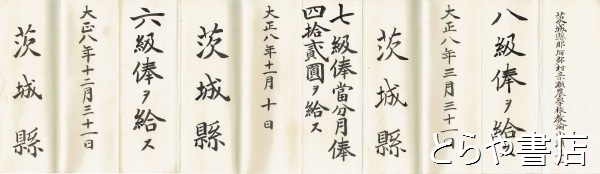 八級俸ヲ給ス
大正八年三月三十一日
茨城縣
七級俸當分月俸
四拾貳圓ヲ給ス
大正八年十一月十日
茨城縣
六級俸ヲ給ス
大正八年十二月三十一日
茨城縣
とらや書店